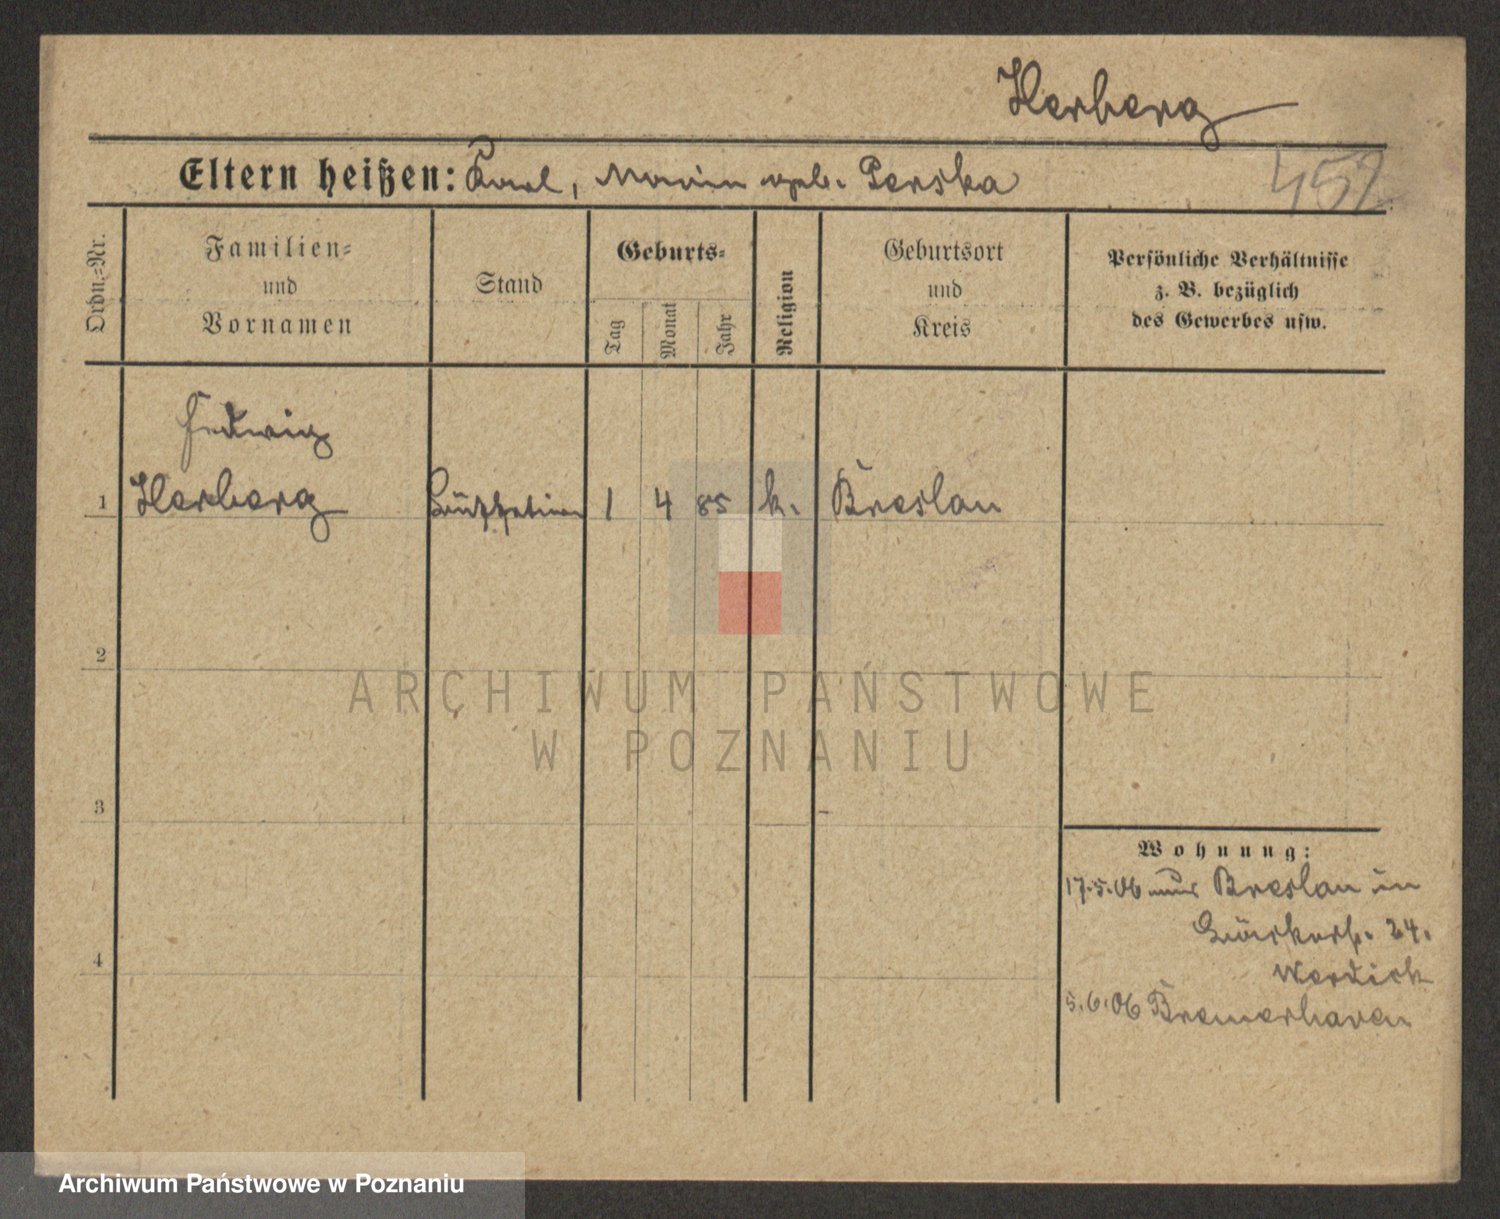 Herberg
Eltern heißen: Karl, Maria geb. Perska
452
Ordn.=Nr.
Familien=
und
Vornamen
Stand
Geburts=
Tag
Monat
Jahr
Religion
Geburtsort
und
Kreis
Persönliche Verhältnisse
z. B. bezüglich
des Gewerbes usw.
Hedwig
1 Herberg 1 4 85 k. Breslau
2
ARCHIWUM PAŃSTWOWE
W POZNANIU
3
Wohnung:
17.5.06 aus Breslau in
24.
4
5.6.06 Bremerhaven
Archiwum Państwowe w Poznaniu